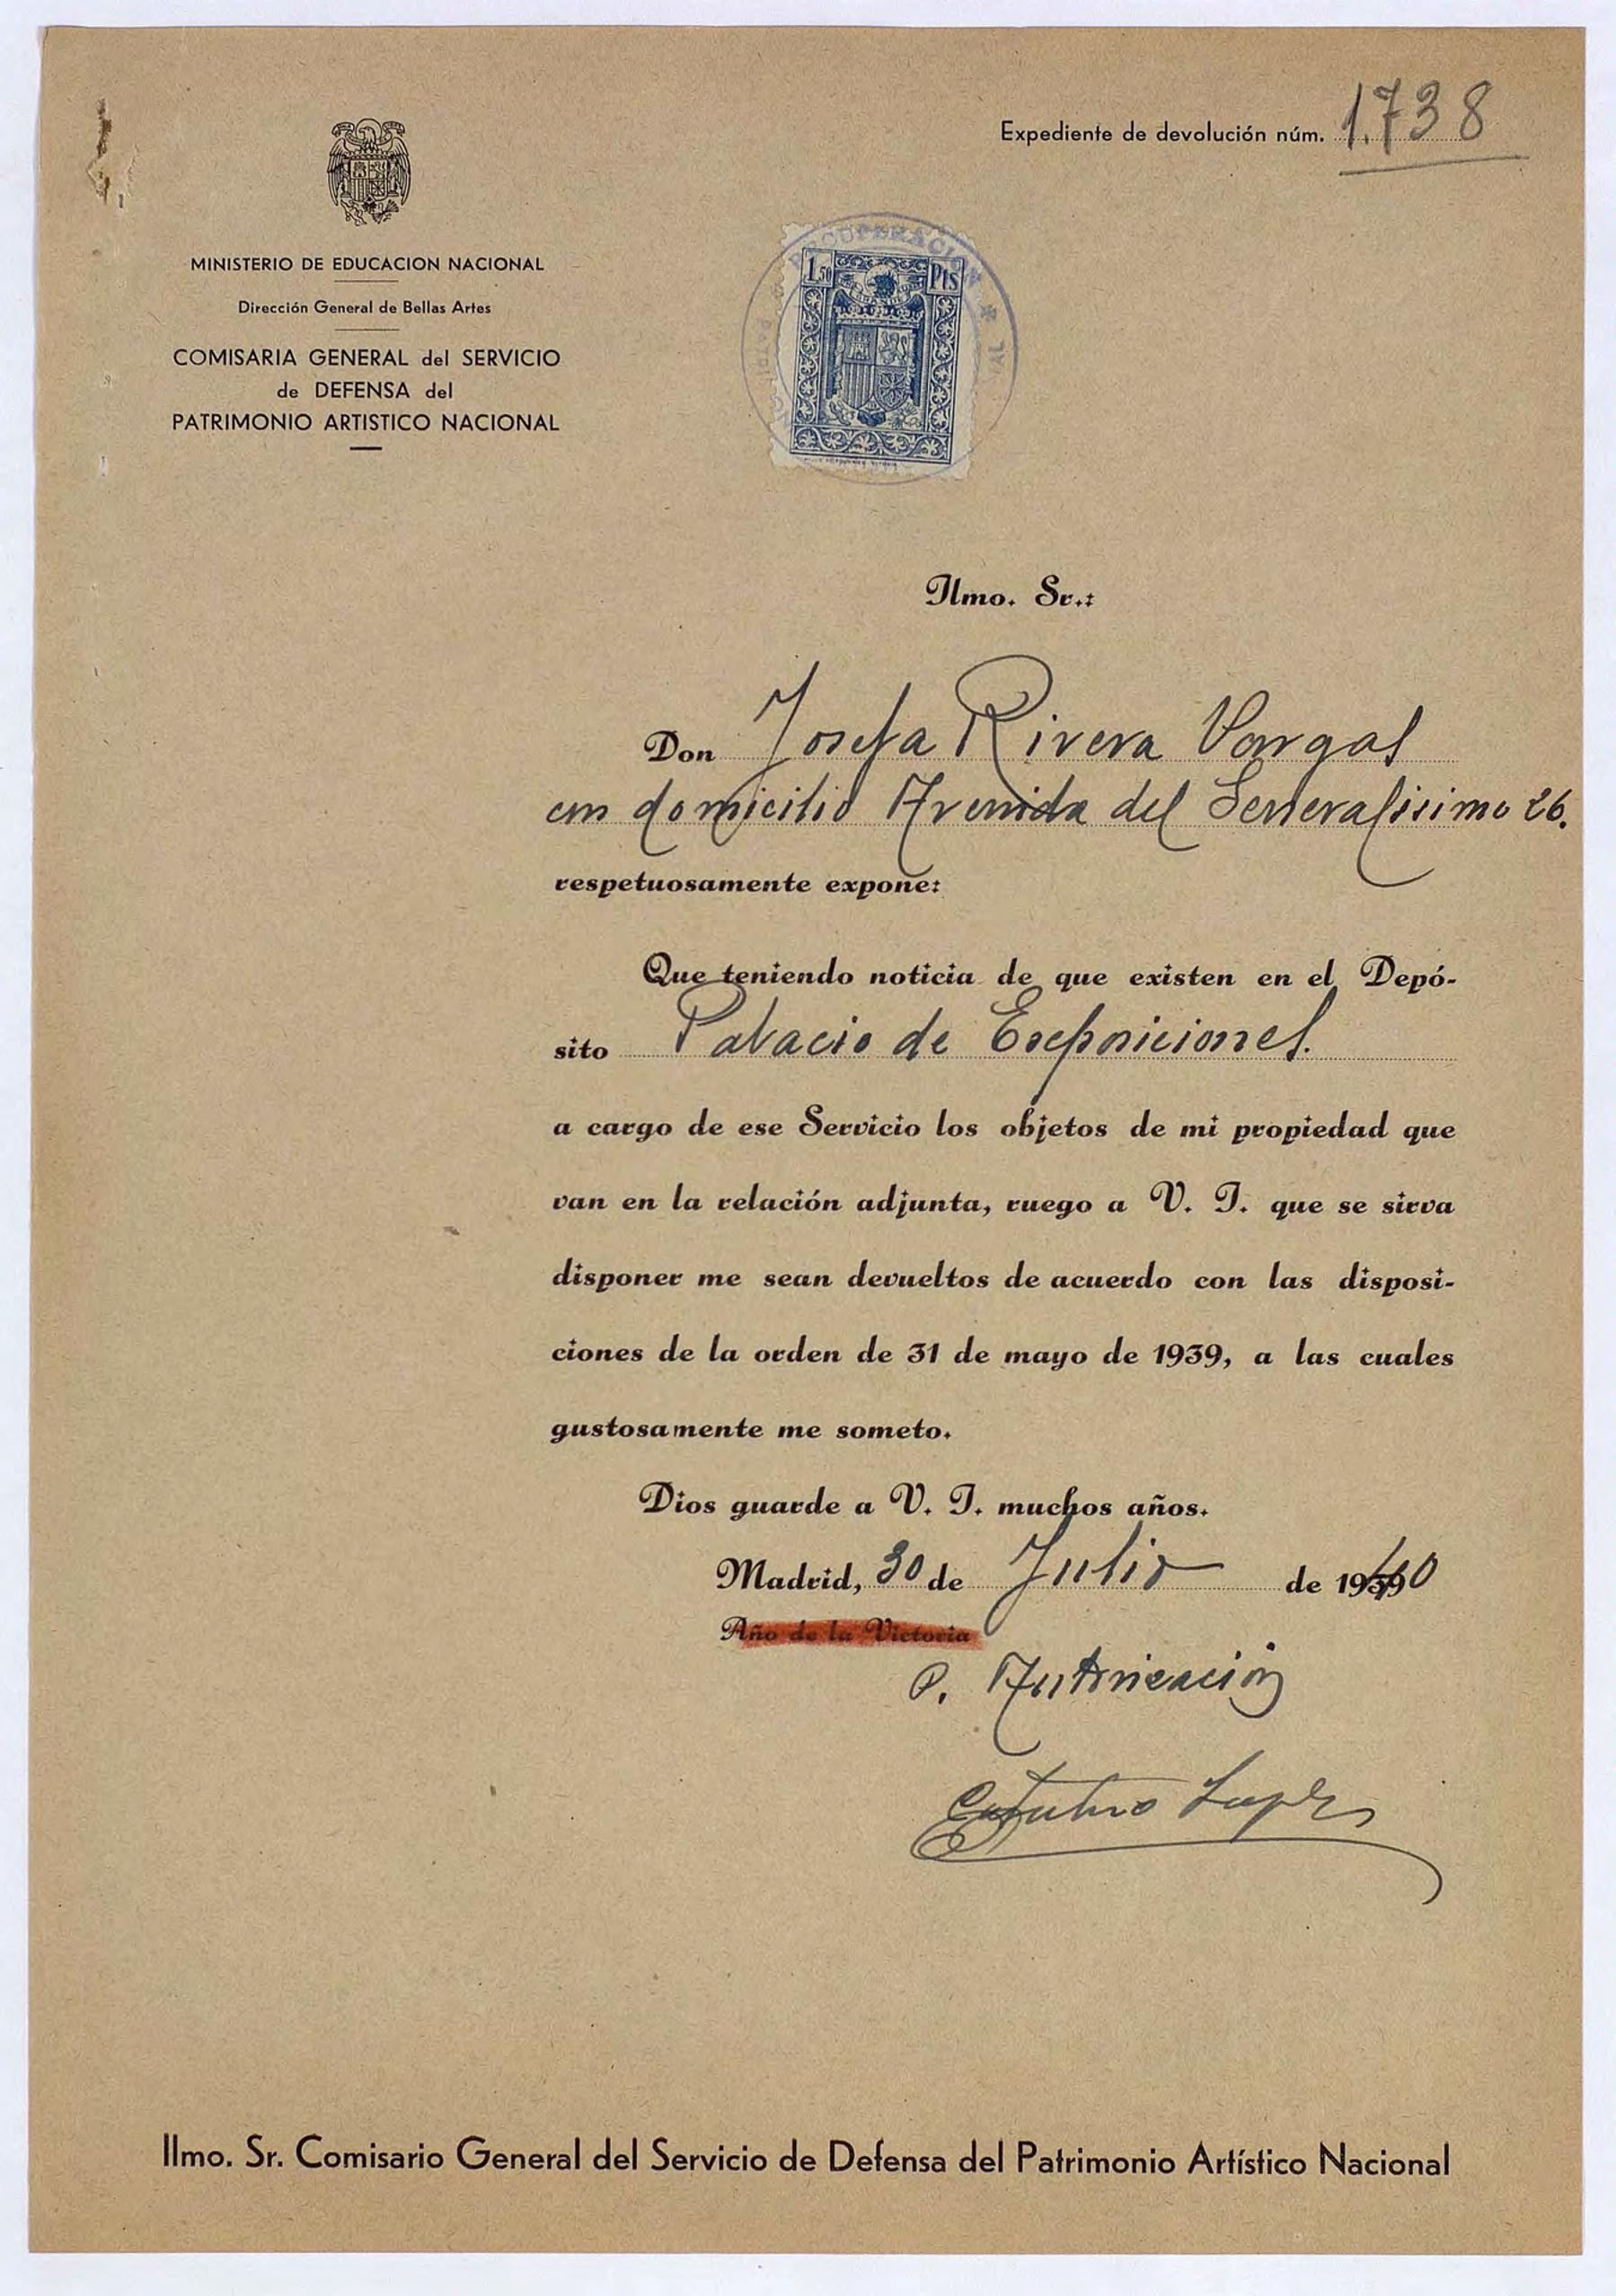 Expediente de devolución núm. 1.738
MINISTERIO DE EDUCACION NACIONAL
Dirección General de Bellas Artes
COMISARIA GENERAL del SERVICIO
de DEFENSA del
PATRIMONIO ARTISTICO NACIONAL
RECUPERACION
1,50 Pts
Ilmo. Sr.:
Don Josefa Rivera Vargas
con domicilio Avenida del Generalisimo 26.
respetuosamente expone:
Que teniendo noticia de que existen en el Depó-
sito Palacio de Exposiciones.
a cargo de ese Servicio los objetos de mi propiedad que
van en la relación adjunta, ruego a V. I. que se sirva
disponer me sean devueltos de acuerdo con las disposi-
ciones de la orden de 31 de mayo de 1939, a las cuales
gustosamente me someto.
Dios guarde a V. I. muchos años.
Madrid, 30 de Julio de 1940
Año de la Victoria
P. Autorización
Lopez
Ilmo. Sr. Comisario General del Servicio de Defensa del Patrimonio Artístico Nacional